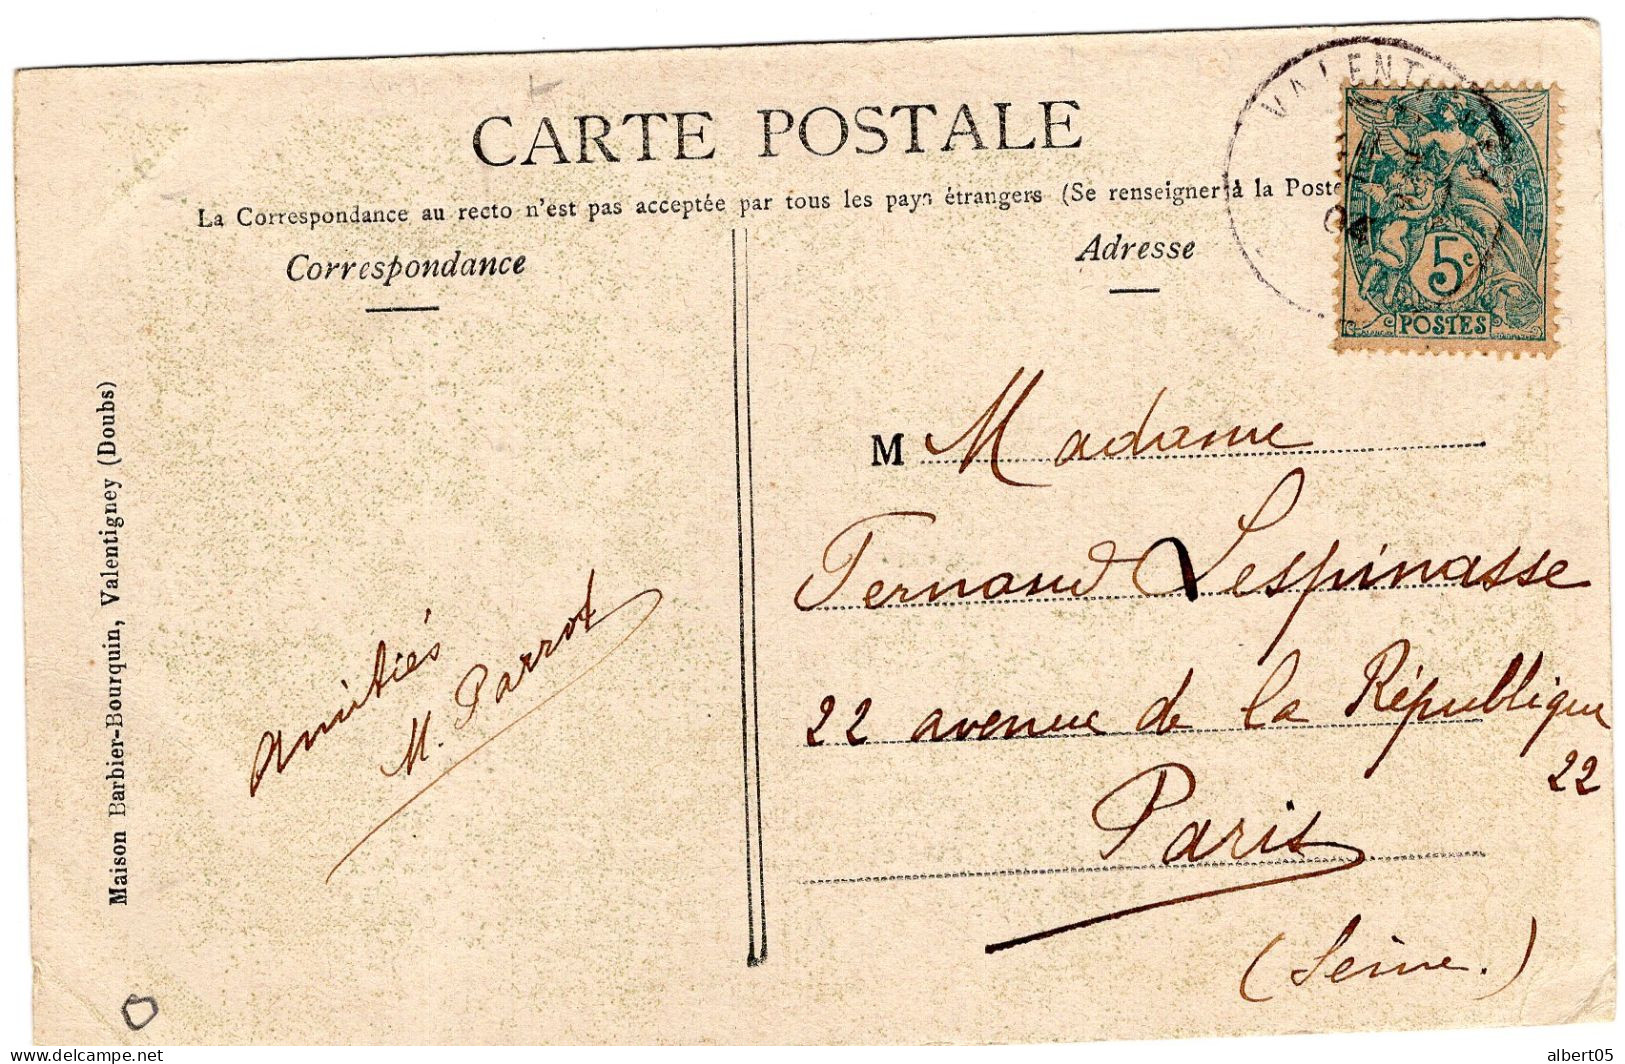 CARTE POSTALE
La Correspondance au recto n'est pas acceptée par tous les pays étrangers (Se renseigner à la Poste
Correspondance
Adresse
VALENT
5c
POSTES
M Madame
Fernand Lespinasse
22 avenue de la République
22
Paris
(Seine.)
amitiés
M. Parrot
Maison Barbier-Bourquin, Valentigney (Doubs)
delcampe.net
albert05